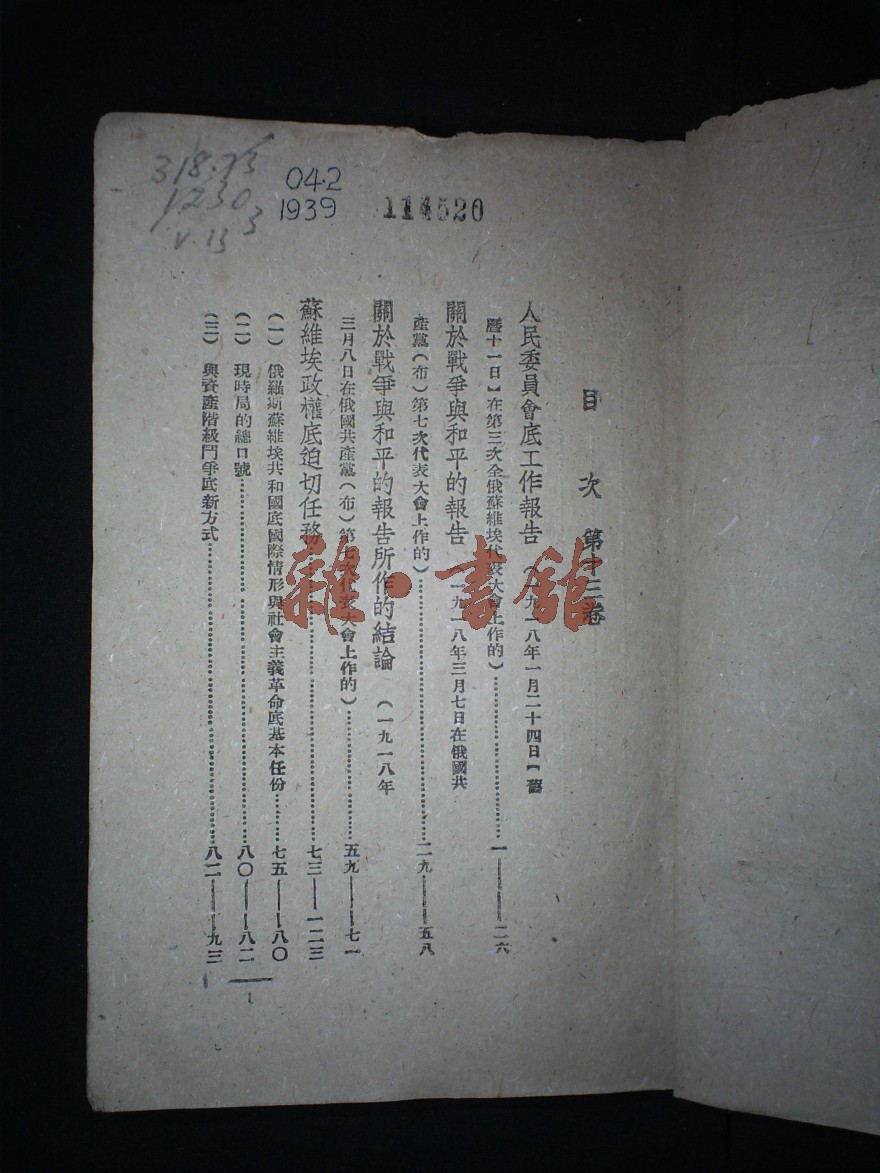 318.73
1230
3
v.13
04.2
1939
114520
目 次 第十三卷
人民委員會底工作報告 (一九一八年一月二十四日【舊
曆十一日】在第三次全俄蘇維埃代表大會上作的)……一——二六
關於戰爭與和平的報告 (一九一八年三月七日在俄國共
產黨(布)第七次代表大會上作的)……二九——五八
關於戰爭與和平的報告所作的結論 (一九一八年
三月八日在俄國共產黨(布)第七次代表大會上作的)……五九——七一
蘇維埃政權底迫切任務……七三——一二三
(一) 俄羅斯蘇維埃共和國底國際情形與社會主義革命底基本任份……七五——八〇
(二) 現時局的總口號……八〇——八二
(三) 與資產階級鬥爭底新方式……八二——九三
1
雜·書館